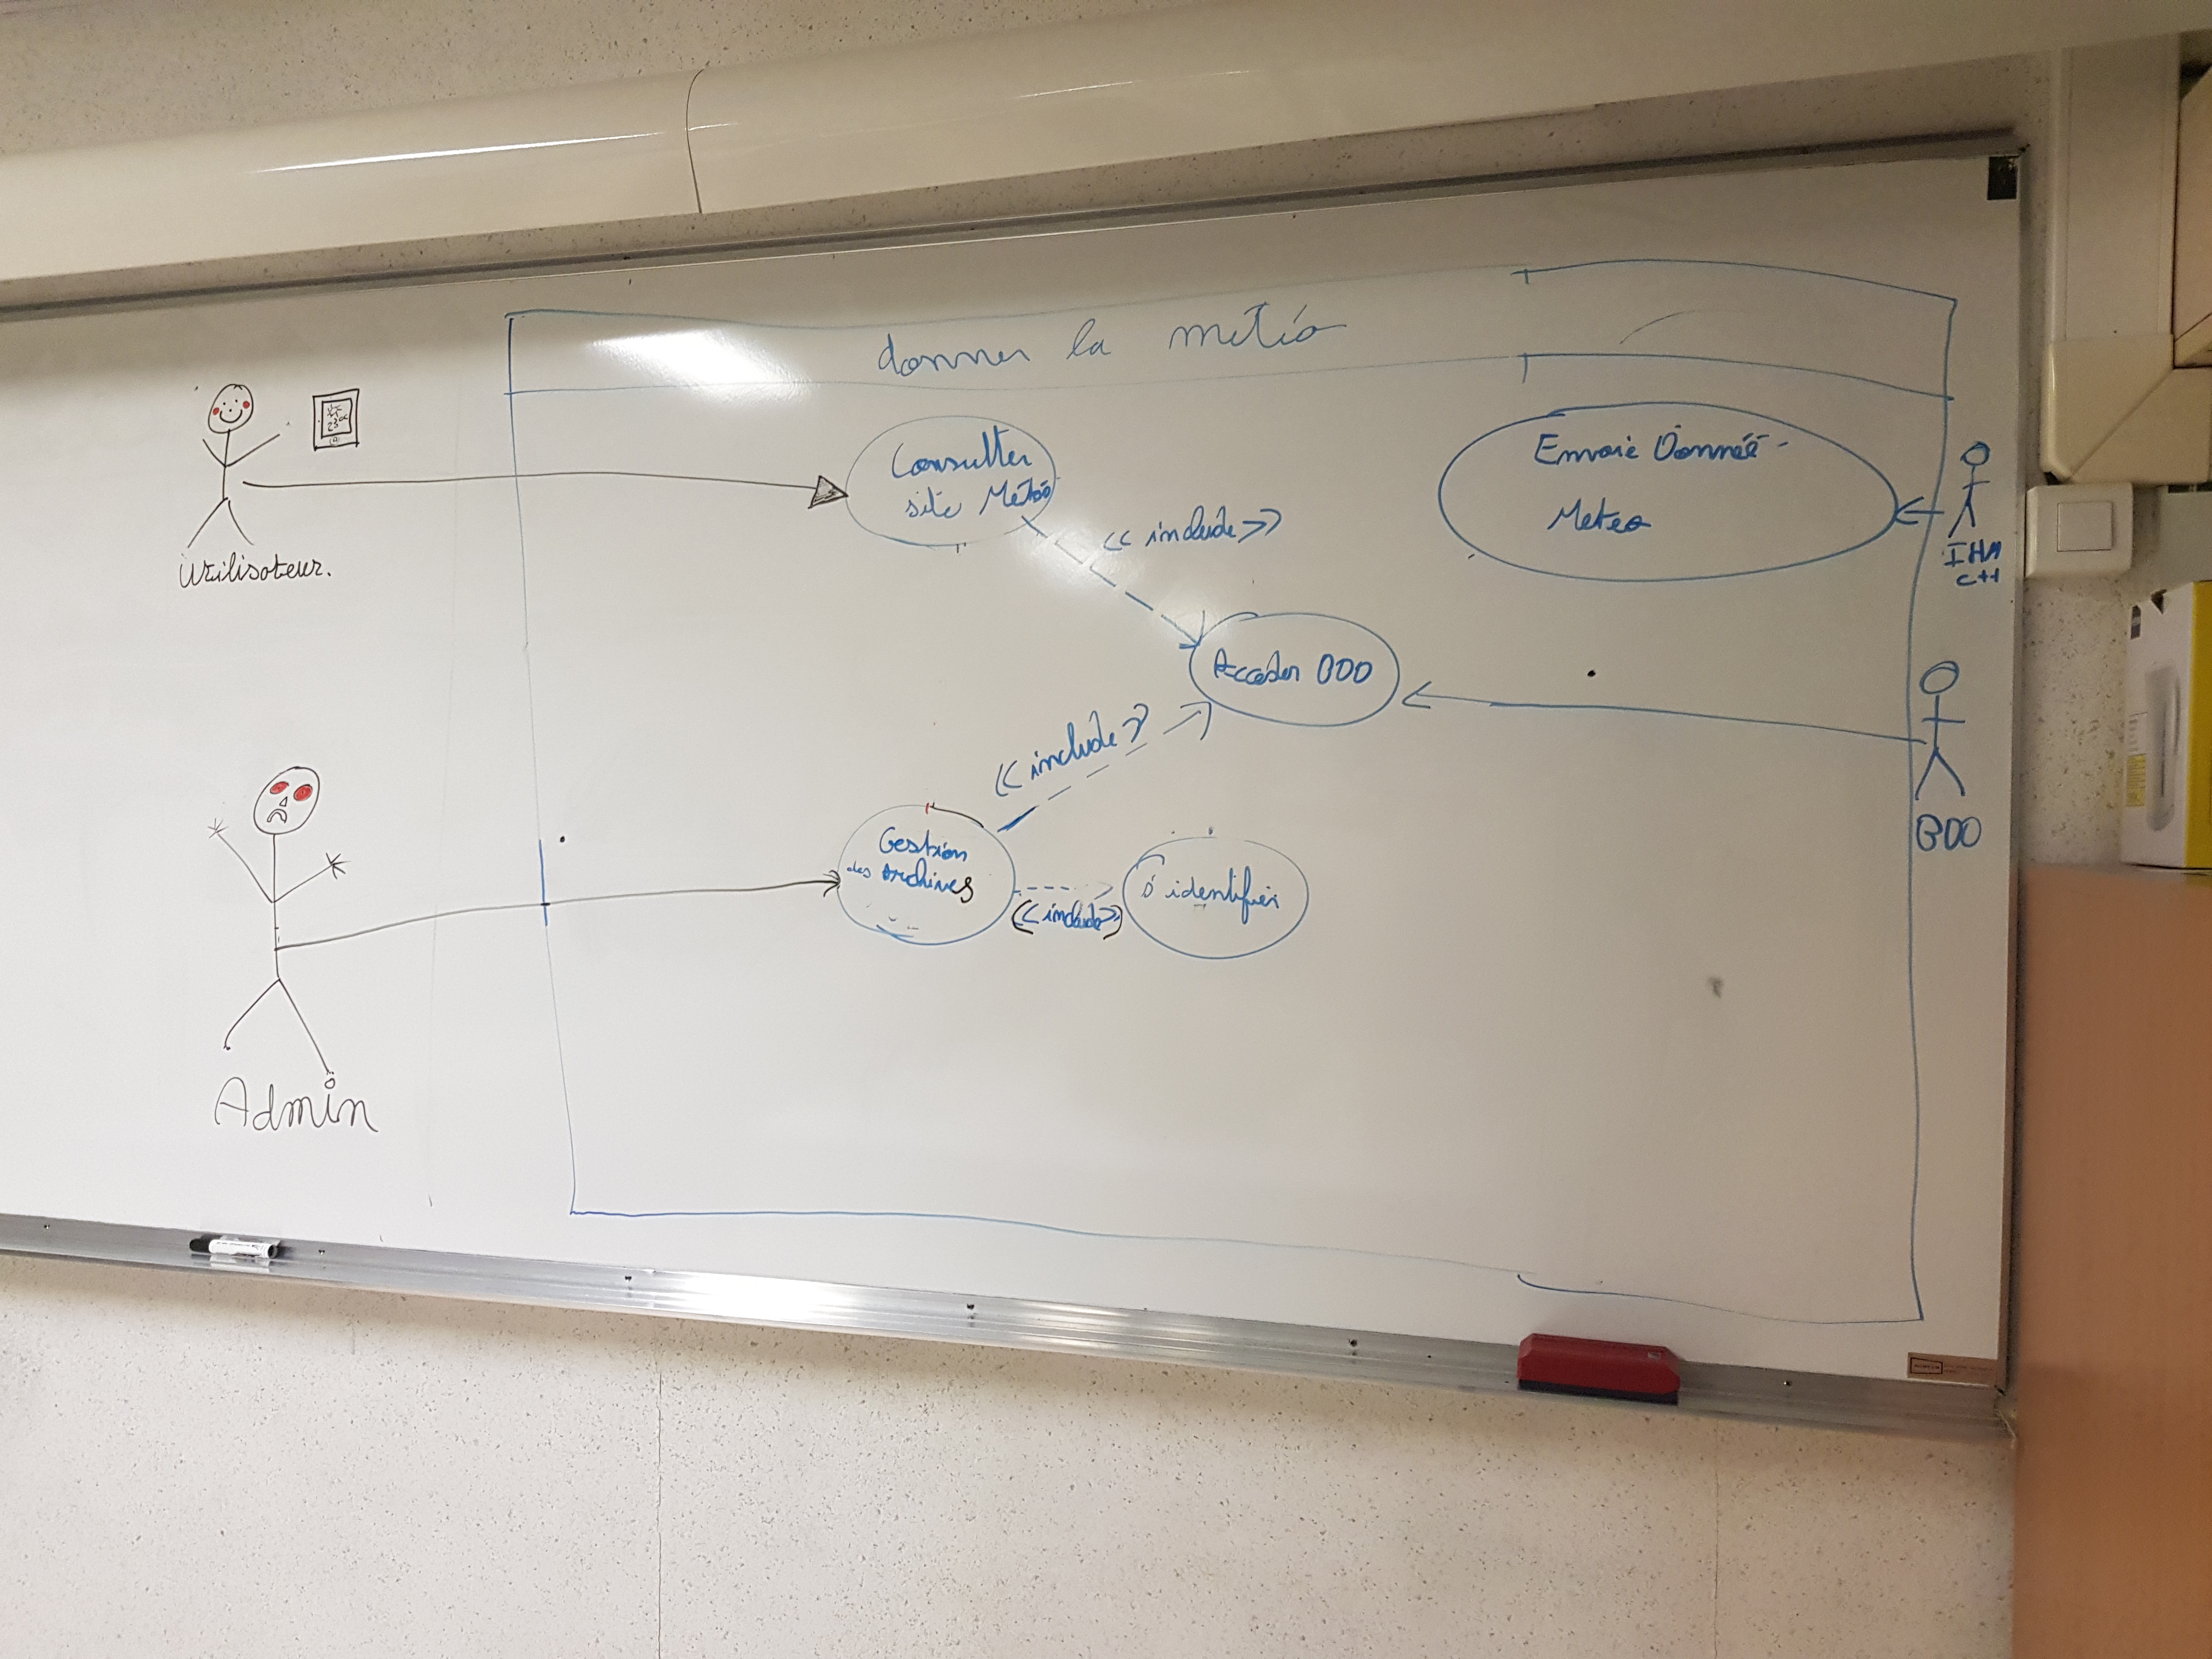 donner la météo
Utilisateur.
23°C
Consulter
site Météo
<< include >>
Envoie Donnée
Meteo
IHM
C++
Acceder BDD
BDD
<< include >>
Gestion
des Archives
<< include >>
S'identifier
Admin